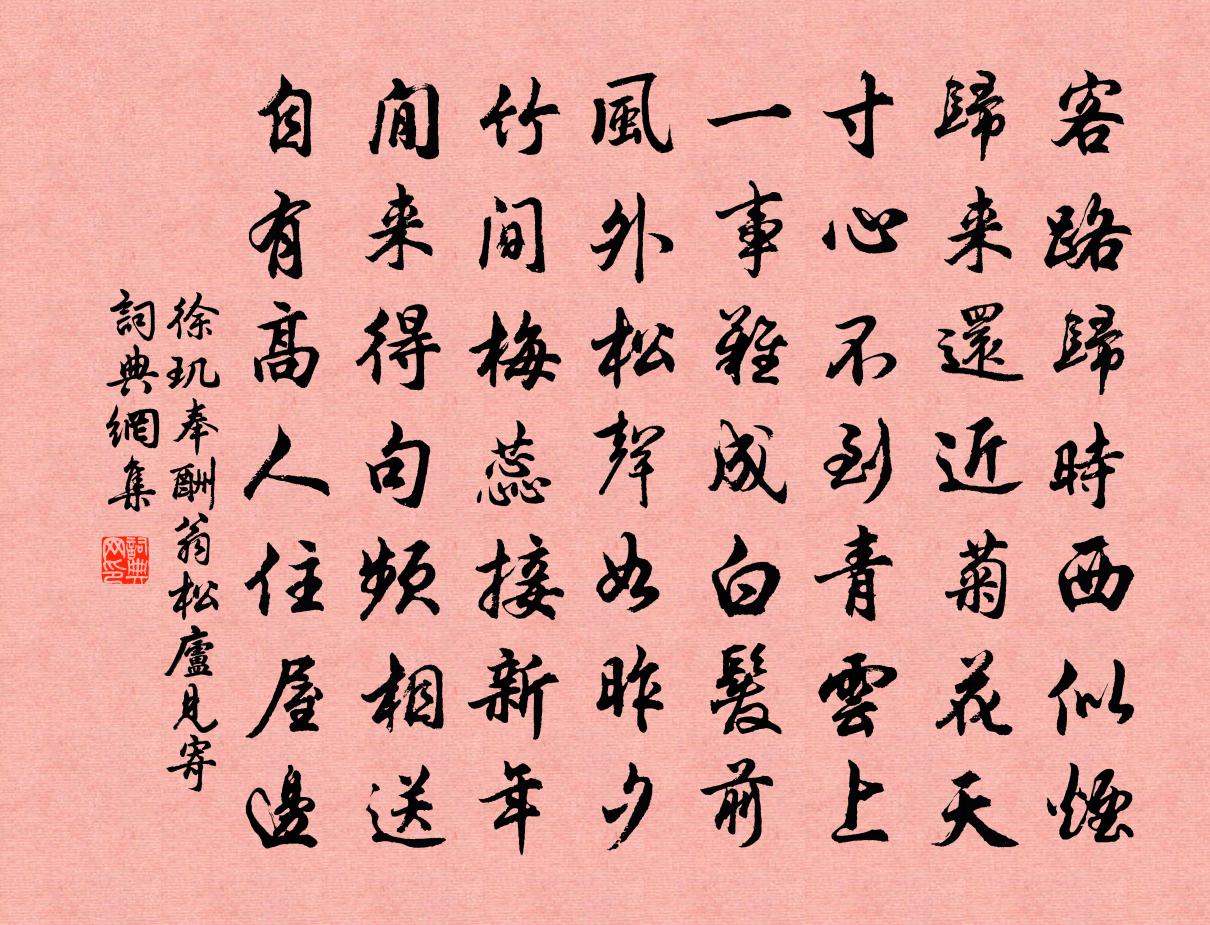 客路歸時西似煙
歸来還近菊花天
寸心不到青雲上
一事難成白髮前
風外松聲如昨夕
竹間梅蕊接新年
閒来得句頻相送
自有高人住屋邊
徐玑奉酬翁松廬見寄
詞典網集
詞典网印